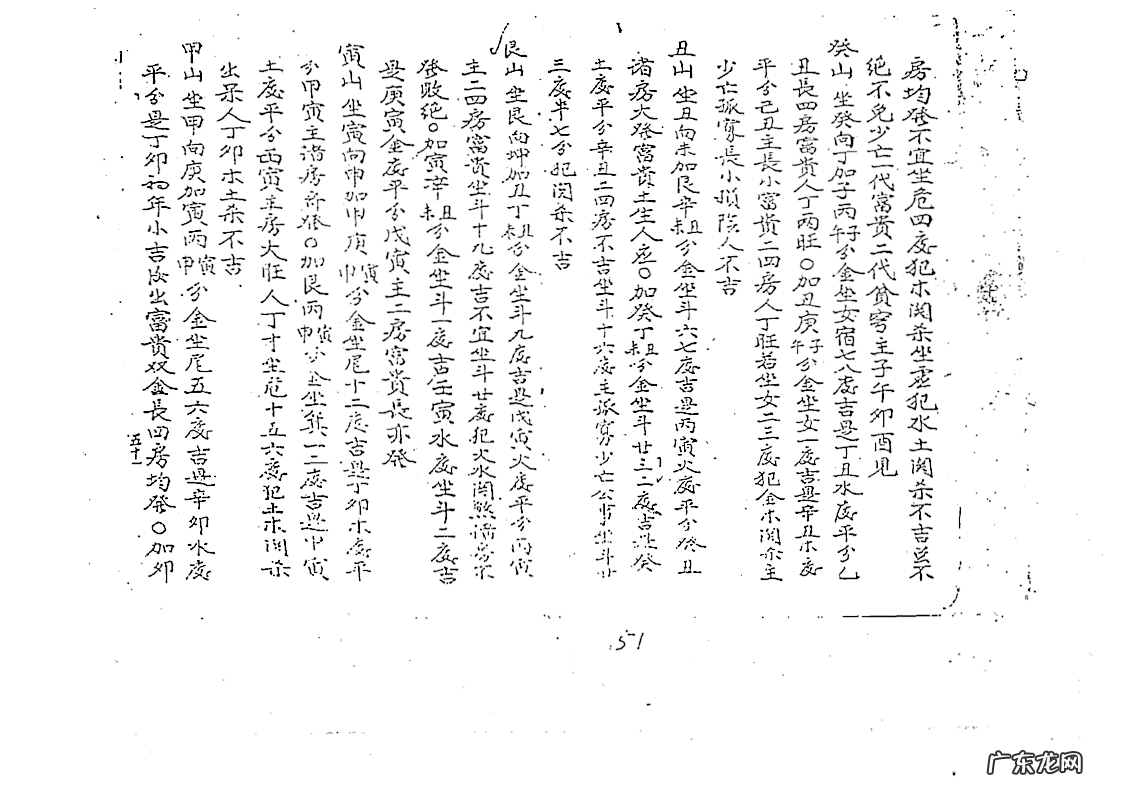 房均發不宜坐危四度犯木関杀坐虚犯水土関杀不吉总不
絶不免少亡一代富贵二代貧窮主子午卯酉見
癸山坐癸向丁加子丙子午分金坐女宿七八度吉是丁丑水度平分乙
丑長四房富贵人丁两旺〇加丑庚子午分金坐女一度吉是辛丑木度
平分己丑主長小富贵二四房人丁旺若坐女二三度犯金木関杀主
少亡孤寡長小損陰人不吉
丑山坐丑向未加艮辛丑未分金坐斗六七度吉是丙寅火度平分癸丑
諸房大發富贵土生人應〇加癸丁丑未分金坐斗廿三二度吉是癸
土度平分辛丑二四房不吉坐斗十六度主孤寡少亡公事坐斗廿
三度半七分犯関杀不吉
艮山坐艮向坤加丑丁丑未分金坐斗九度吉是戊寅火度平分丙寅
主二四房富贵坐斗十九度吉不宜坐斗廿度犯火水関煞諸房不
發敗絶〇如寅辛丑未分金坐斗一度吉壬寅水度坐斗二度吉
是庚寅金度平分戊寅主二房富贵長亦發
寅山坐寅向申加甲庚寅申分金坐尾十二度吉是丁卯木度平
分甲寅主諸房齐發〇加艮丙寅申分金坐箕一二度吉是甲寅
土度平分西寅主房大旺人丁寸坐危十五六度犯土木関杀
出呆人丁卯木土杀不吉
甲山坐甲向庚加寅丙寅申分金坐尾五六度吉是辛卯水度
平分是丁卯初年小吉後出富贵双金長四房均發〇加卯
五十一
51
广东龙网